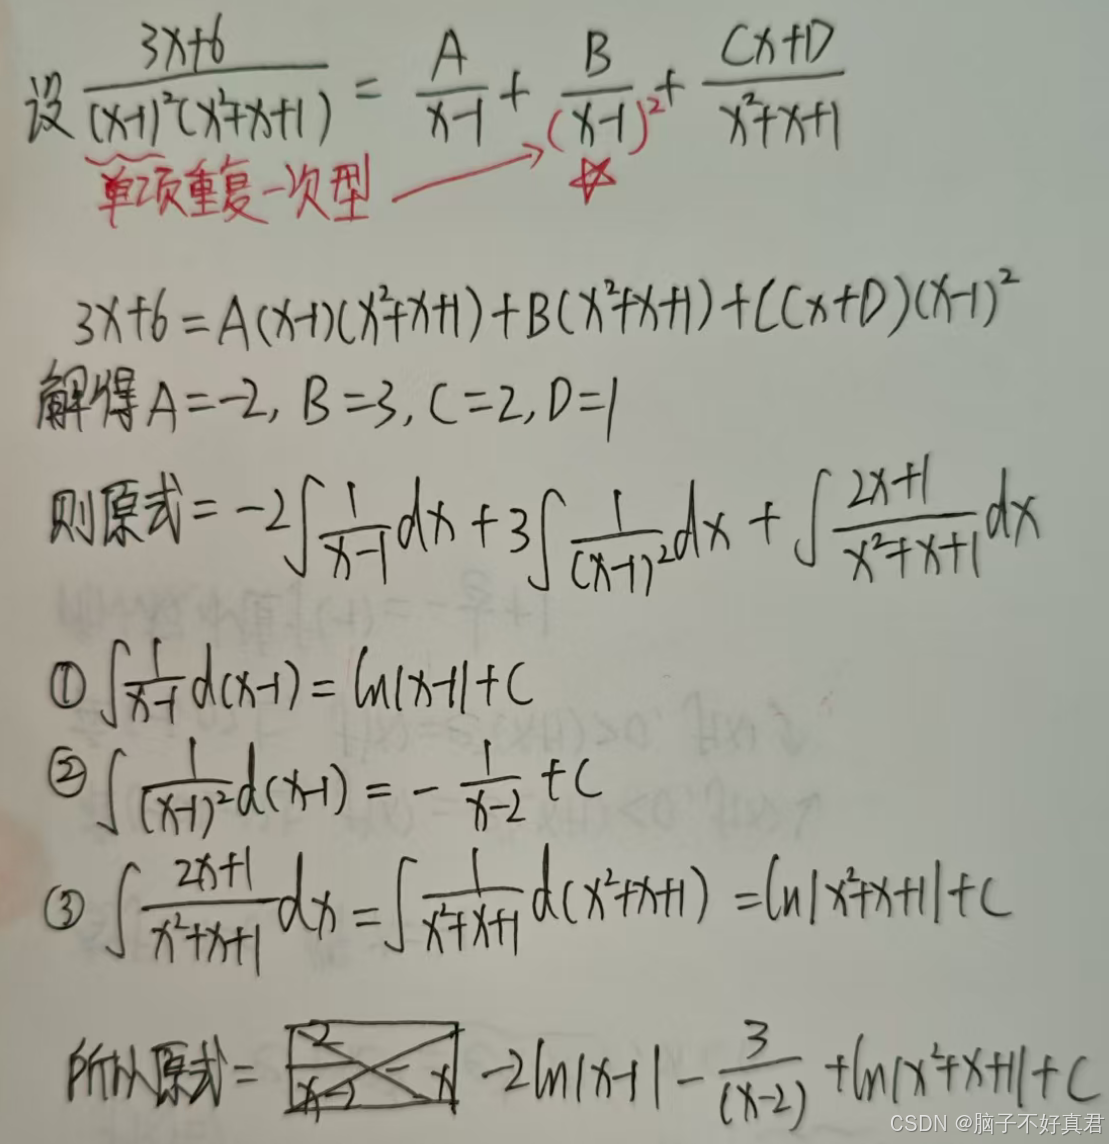 设 (3x+6)/((x-1)²(x²+x+1)) = A/(x-1) + B/(x-1)² + (Cx+D)/(x²+x+1)
单项重复一次型 → ☆
3x+6=A(x-1)(x²+x+1)+B(x²+x+1)+(Cx+D)(x-1)²
解得A=-2, B=3, C=2, D=1
则原式= -2∫1/(x-1) dx + 3∫1/(x-1)² dx + ∫(2x+1)/(x²+x+1) dx
① ∫1/(x-1) d(x-1) = ln|x-1|+C
② ∫1/(x-1)² d(x-1) = -1/(x-2) +C
③ ∫(2x+1)/(x²+x+1) dx = ∫1/(x²+x+1) d(x²+x+1) = ln|x²+x+1|+C
所以原式= -2ln|x-1| - 3/(x-2) + ln|x²+x+1|+C
CSDN @脑子不好真君